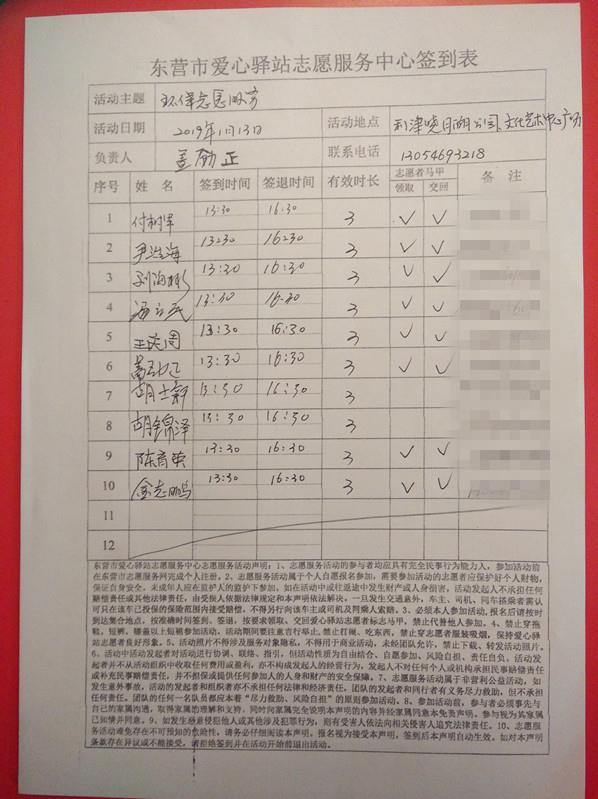 东营市爱心驿站志愿服务中心签到表
活动主题 环保志愿服务
活动日期 2019年1月13日 活动地点 利津晓月湖公园 文化艺术中心广场
负责人 盖勋正 联系电话 13054693218
序号 姓 名 签到时间 签退时间 有效时长 志愿者马甲 备 注
领取 交回
1 付树军 13:30 16:30 3 ✓ ✓
2 尹洪海 13:30 16:30 3 ✓ ✓
3 刘海彬 13:30 16:30 3 ✓ ✓
4 13:30 16:30 3 ✓ ✓
5 王庆周 13:30 16:30 3 ✓ ✓
6 13:30 16:30 3 ✓ ✓
7 胡士新 13:30 16:30 3
8 胡锦泽 13:30 16:30 3
9 陈育英 13:30 16:30 3 ✓ ✓
10 金志鹏 13:30 16:30 3 ✓ ✓
11
12
东营市爱心驿站志愿服务中心志愿服务活动声明：1、志愿服务活动的参与者均应具有完全民事行为能力人，参加活动前
在东营市志愿服务网完成个人注册。2、志愿服务活动属于个人自愿报名参加，需要参加活动的志愿者应保护好个人财物，
保证自身安全，未成年人应在监护人的监护下参加，如在活动中或往返途中发生财产或人身损害，活动发起人不承担任何
赔偿责任或其他法律责任，由受损人依据法律规定和本声明依法解决。一旦发生交通意外，车主、司机、同车搭乘者需认
可只在该车已投保的保险范围内接受赔偿，不得另行向该车主或司机及同乘人索赔。3、必须本人参加活动，报名后请按时
到达集合地点，按准确时间签到、签退，按要求领取、交回爱心驿站志愿者标志马甲，禁止代替他人参加。4、禁止穿拖
鞋，短裤，膝盖以上短裙参加活动，活动期间要注意言行举止，禁止打闹、吃东西，禁止穿志愿者服装吸烟，保持爱心驿
站志愿者良好形象。5、活动照片不得涉及服务对象隐私，不得用于商业活动，未经团队允许，禁止下载、转发活动照片。
6、活动中活动发起者对活动进行协调、联络、指引，但活动性质为自由结合、自愿参加、风险自担、责任自负，活动发
起者并不从活动组织中收取任何费用或盈利，亦不构成发起人的经营行为，发起人不对任何个人或机构承担民事赔偿责任
或补充民事赔偿责任，并不担保或提供任何参加人的人身和财产的安全保障。7、志愿服务活动属于非营利公益活动，如
发生意外事故，活动的发起者和组织者亦不承担任何法律和经济责任。团队的发起者和同行者有义务尽力救助，但不承担
任何责任。团队的任何一名队员都应本着“尽力救助、风险自担”的原则参加活动。8、参加活动前，参与者必须事先与
自己的家属沟通，取得家属的理解和支持，同时向家属完全说明本声明的内容并经家属同意本免责声明，参与视为其家属
已知情并同意。9、如发生肇意侵犯他人或其他涉及犯罪行为，则有受害人依法向相关侵害人追究法律责任。10、志愿服
务活动难免存在不可预知的危险性，请务必仔细阅读本声明，报名视为接受本声明，签到后本声明自动生效。如对本声明
条款存在异议或不能接受，请拒绝签到并在活动开始前退出活动。